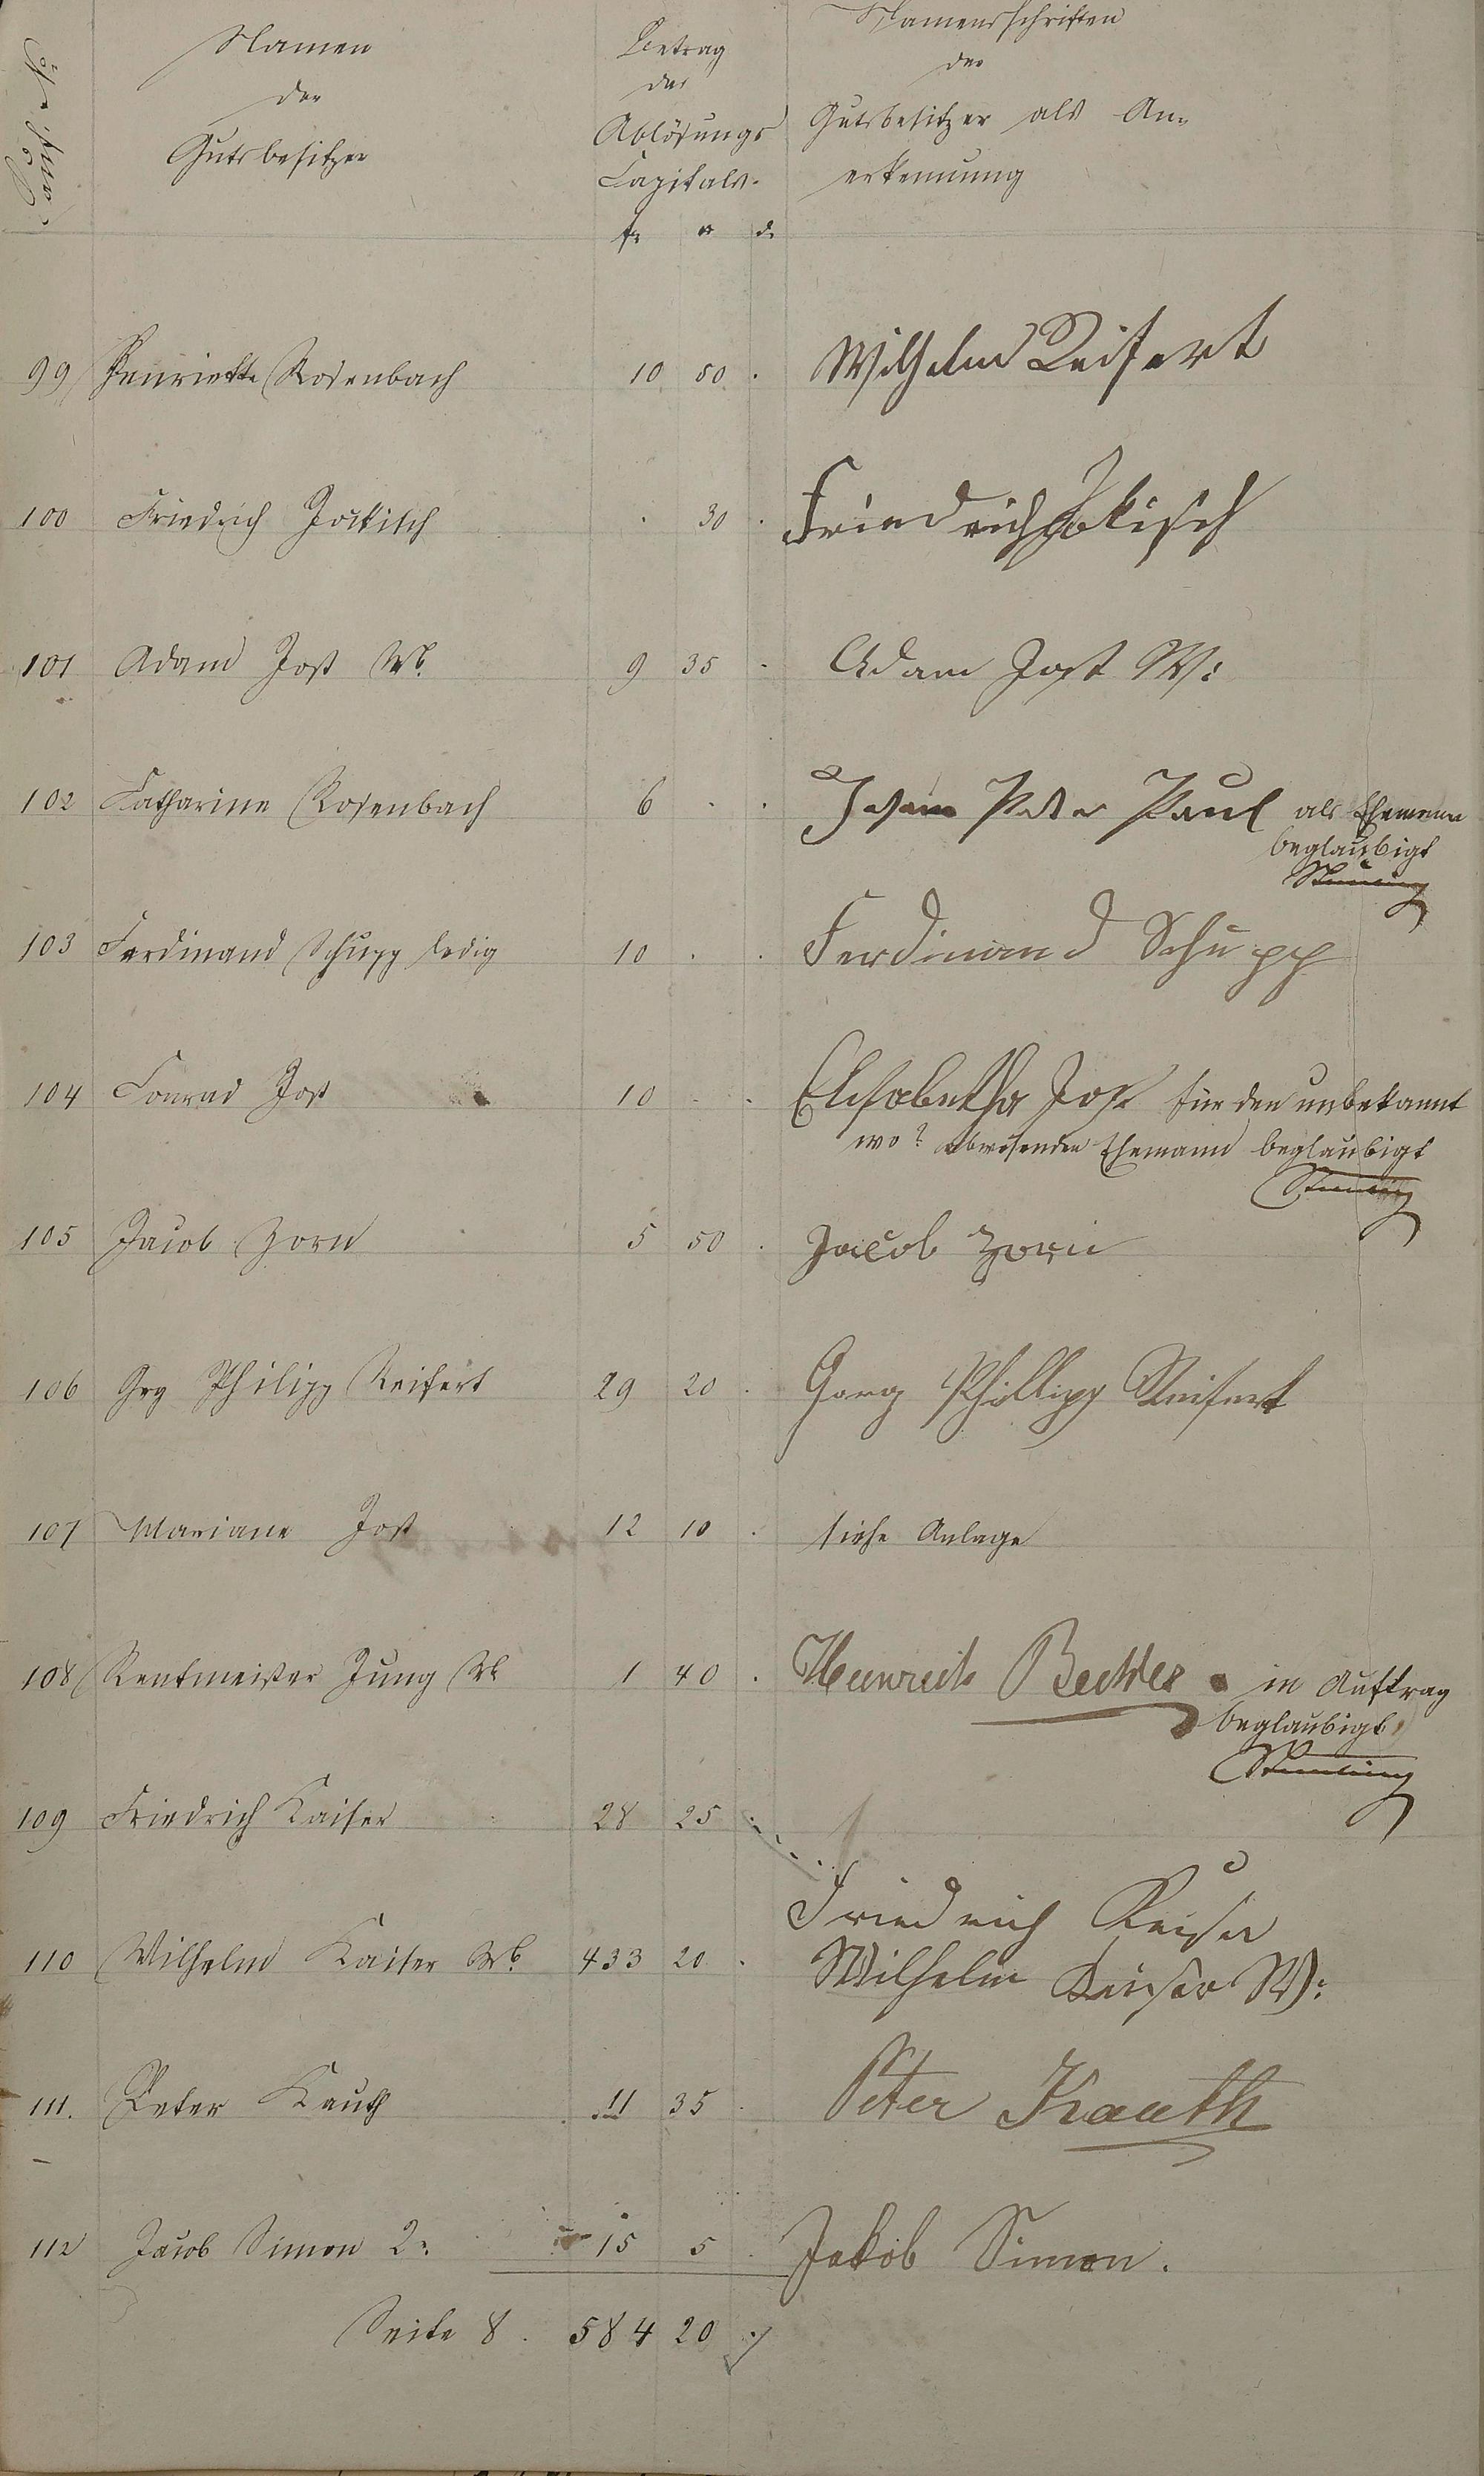 Namen
der
Gutsbesitzer
Betrag
des
Ablösungs
Capitals.
Namensschriften
der
Gutsbesitzer als An-
erkennung
99 Henriette Rosenbach 10 50 . Wilhelm Reifert
100 Friedrich Jockisch . 30 . Friedrich Jokisch
101 Adam Jost Wb. 9 35 . Adam Jost W:
102 Catharine Rosenbach 6 . . Johann Peter Paul als Ehemann
beglaubigt
103 Ferdinand Schupp ledig 10 . . Ferdinand Schupp
104 Conrad Jost 10 . . Elisabetha Jost für den unbekannt
wo? abwesenden Ehemann beglaubigt
105 Jacob Zorn 5 50 . Jacob Zorn
106 Grg Philipp Reifert 29 20 . Georg Phillipp Reifert
107 Mariane Jost 12 10 . siehe Anlage
108 Rentmeister Jung Wb 1 40 . Heinrich Bechtel in Auftrag
beglaubigt
109 Friedrich Kaiser 28 25
Friedrich Keiser
110 Wilhelm Kaiser Wb. 433 20 . Wilhelm Keiser W:
111. Peter Kauth 11 35 . Peter Kauth
112 Jacob Simon 2r 15 5 . Jakob Simon.
Seite 8. 584 20 .